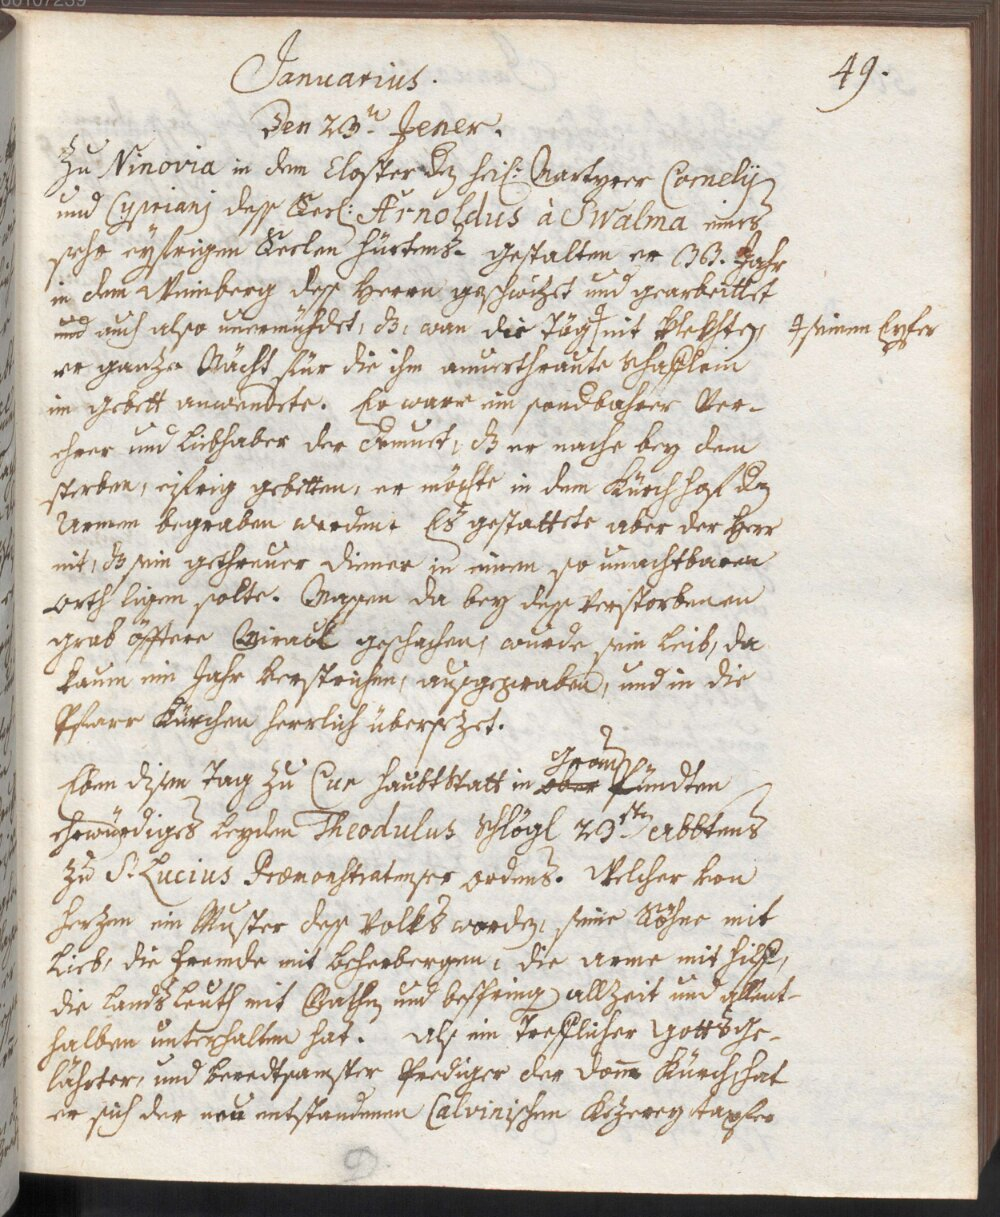 Januarius.
49.
Den 23.ten Jener.
Zu Ninovia in dem Closter der heil: Martyrer Cornelij
und Cypriani dess Seel: Arnoldus à Swalma eines
sehr eyfrigen Seelen Hürtens. gestalten er 33. Jahr
in dem Weinberg dess Herrn geschwitzet und gearbeittet
und auch also unermühdet, dz, wan die Täg nit klekhten,
‡ seinem Eyfer
er ganze Nächt für die ihm anverthraute Schäfflein
im gebett anwendete. Er ware ein sondbahrer Ver-
ehrer und Liebhaber der Armuet, dz er nache bey dem
sterben, eifrig gebetten, er möchte in dem Kürchhof der
Armen begraben werden. Es gestattete aber der Herr
nit, dz sein gethreuer diener in einem so unachtbaren
orth ligen solte. Massen da bey dess verstorbenen
grab öfftere Miracul geschachen, wurde sein Leib, da
kaum ein Jahr verstrichen, ausgegraben, und in die
Pfarr Kürchen herrlich übersezet.
Graw
Eben disen Tag zu Cur Haubtstatt in ober Pündten
ehrwürdiges Leyden Theodulus Schlögl 23sten Abbtens
zu St Lucius Præmonstratenser ordens. Welcher von
Herzen ein Muster dess Volks worden, seine Söhne mit
Lieb, die Fremde mit beherbergen, die arme mit hilff,
die Landsleuth mit Rathen und allzeit und allent-
halben unterhalten hat. Als ein Trefflicher Gottsge-
lährter, und beredtsamster Prediger der Dom Kürch, hat
er sich der neu entstandenen Calvinischen Kezerey tapfer